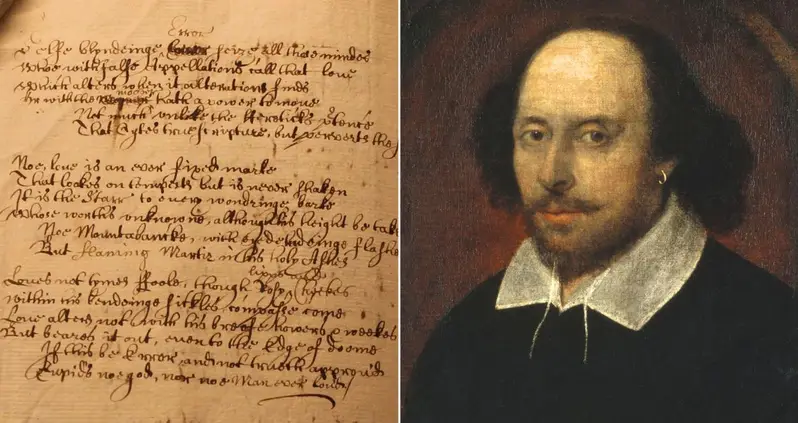 Error
selfe blyndeinge seize all those mindes
Whoe with false Appellations call that love
Which alters when it alterations finds
mover
Or with the hath a power to move
Not much unlike the Hereticks
That Cytes true scripture, but perverts the
Noe, love is an ever fixed marke
That lookes on tempests but is never shaken
It is the Starr to every wondringe barke
Whose worths unknowne, although his height be
Noe Mountabancke, with flashes
But flaming Martir in his holy Ashes
lipps and
Loves not tymes Foole, though Rosy Cheekes
Within his bendeinge sickles compasse come
Love alters not with his breefe howers & weekes
But beares it out, even to the Edge of doome
If this be Error and not truth approv'd
Cupids noe god, nor noe Man ever lov'd